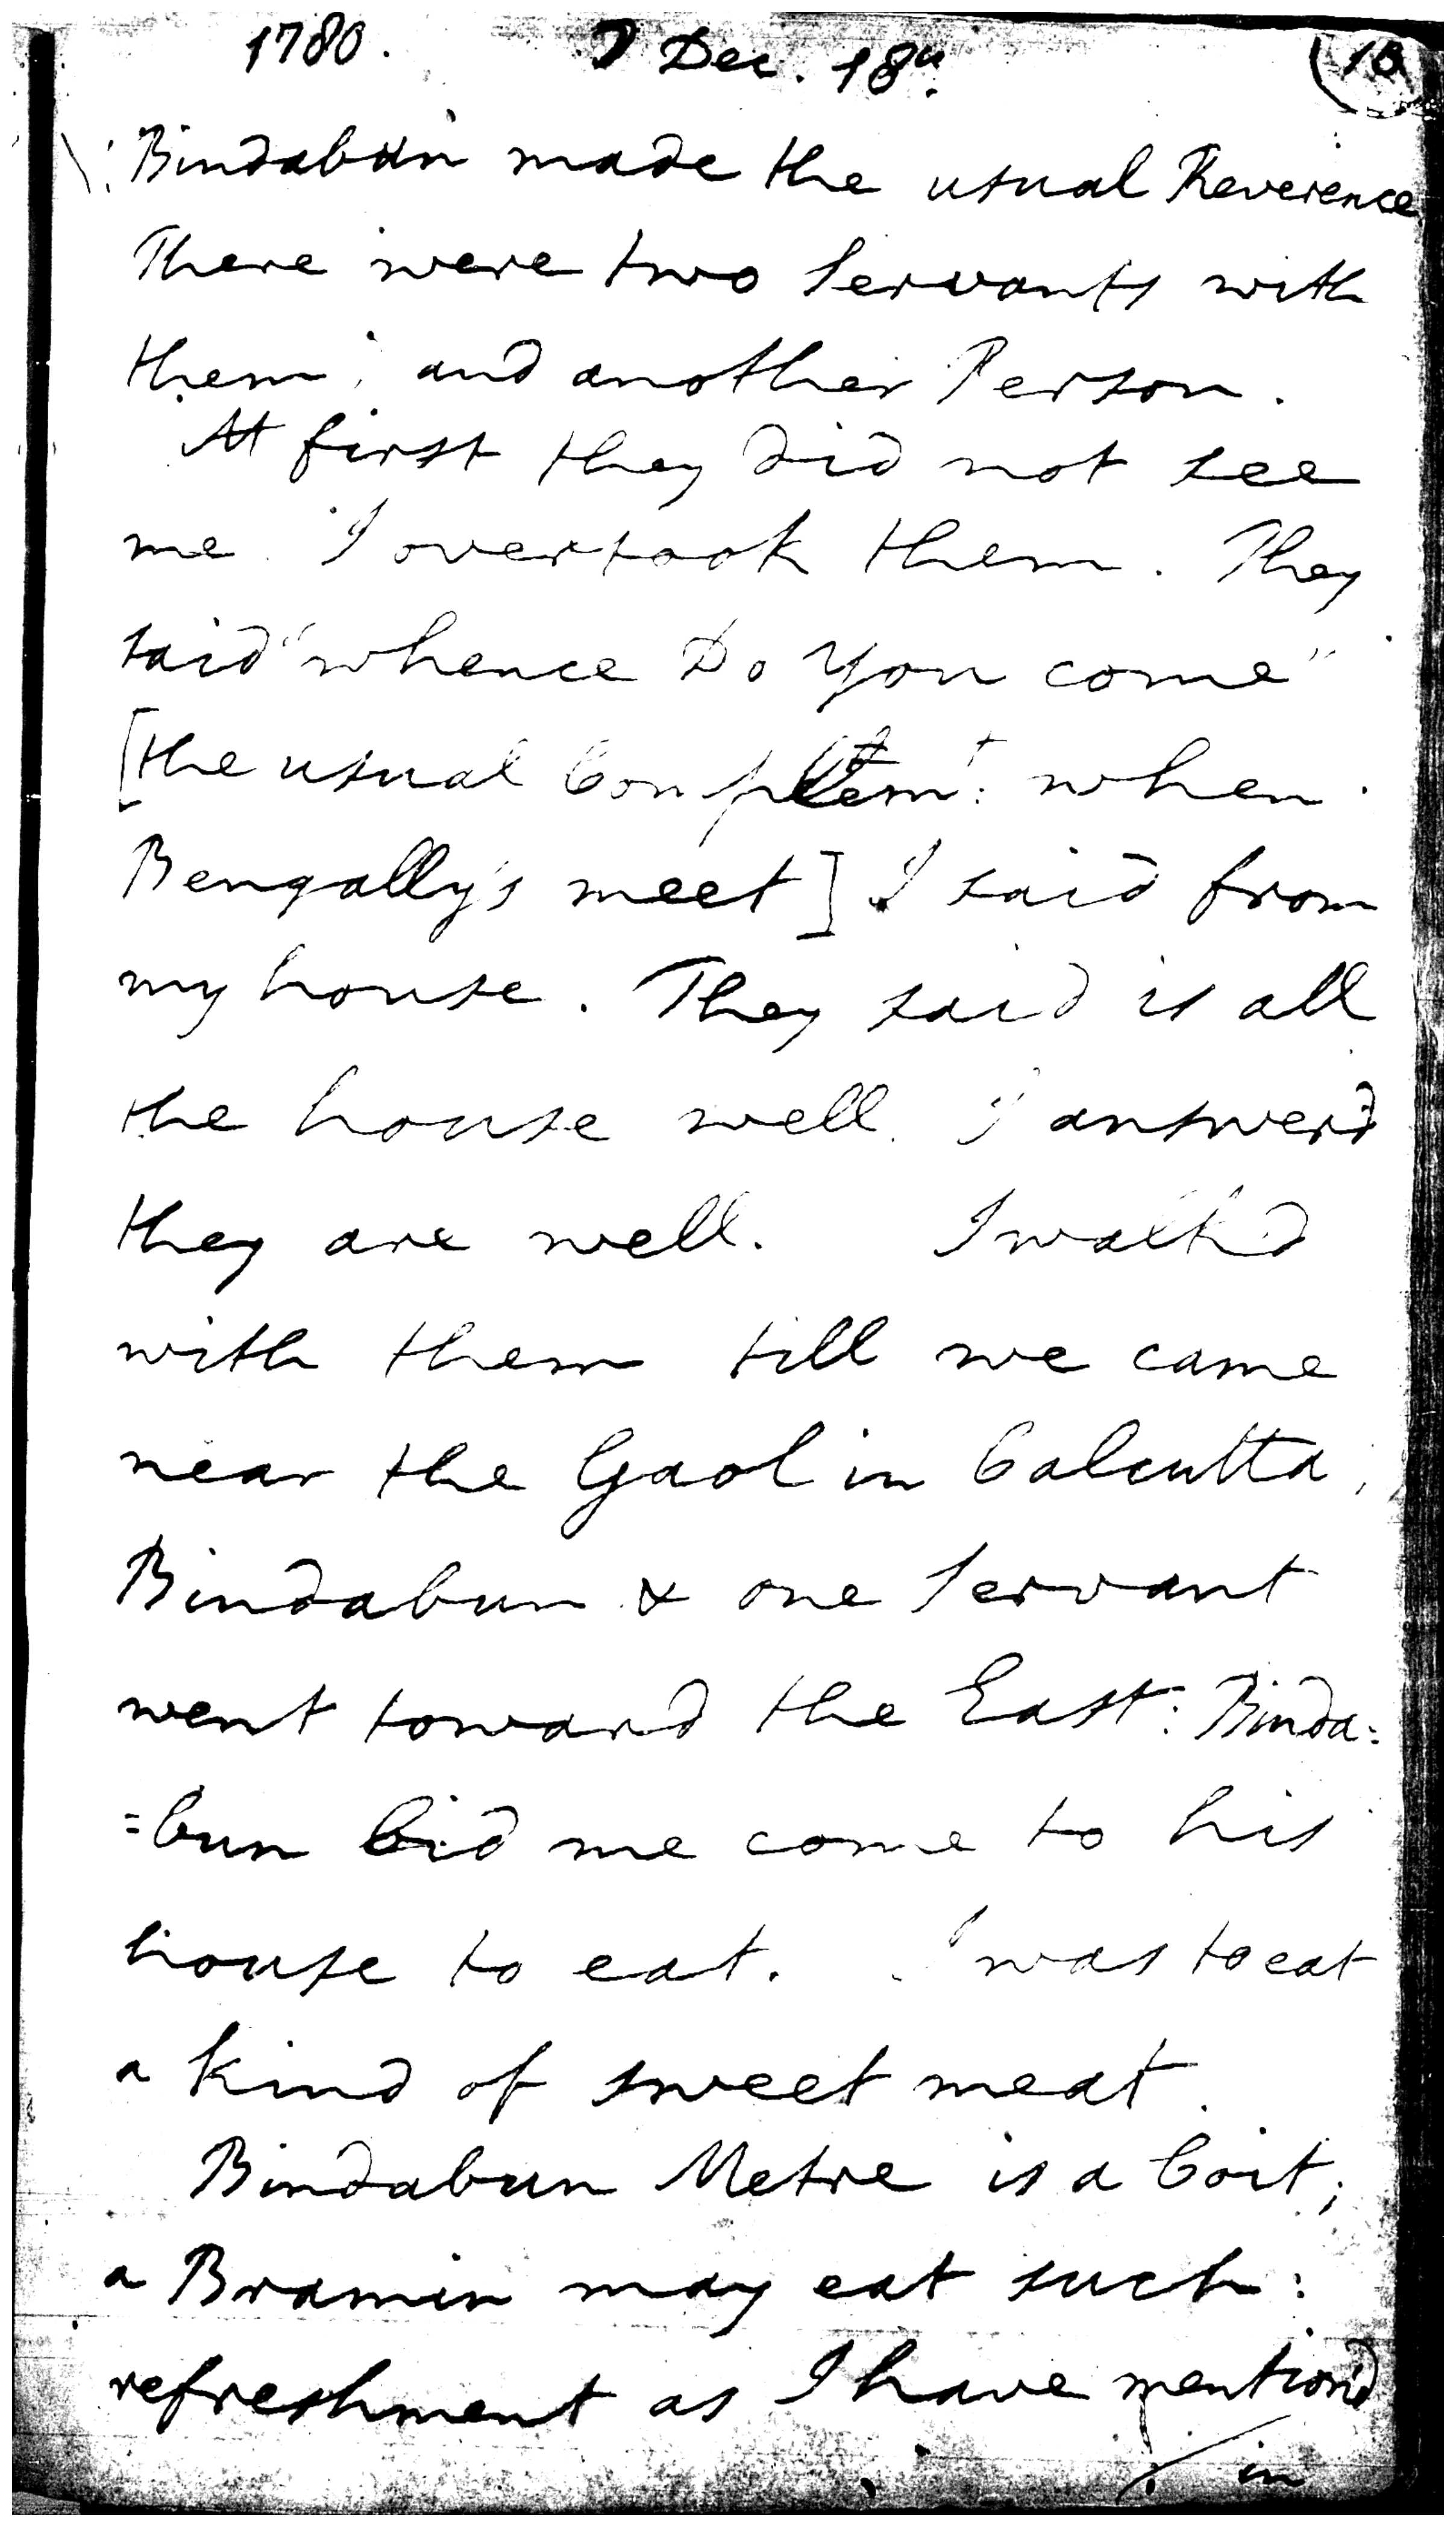 1780. Dec. 18th.
Bindabun made the usual Reverence
There were two Servants with
them; and another Person.
At first they did not see
me. I overtook them. They
said "whence Do you come"
[the usual Complemt: when
Bengally's meet] I said from
my house. They said is all
the house well. I answerd
they are well. I walkd
with them till we came
near the Gaol in Calcutta,
Bindabun & one Servant
went toward the East: Binda:
=bun bid me come to his
house to eat. I was to eat
a kind of sweet meat.
Bindabun Metre is a Coit;
a Bramin may eat such:
refreshment as I have mention'd
/ in